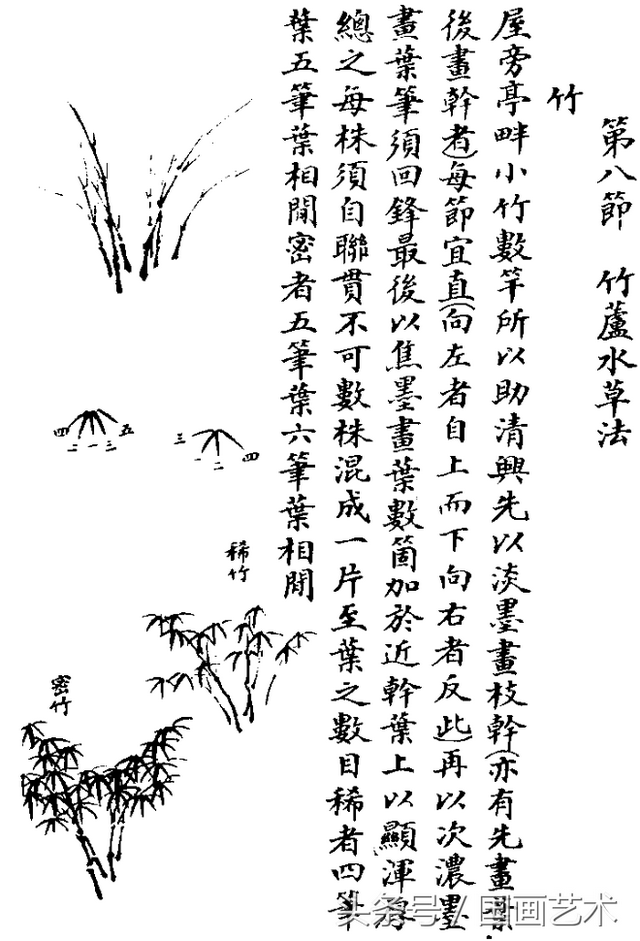 第八節 竹蘆水草法
竹
屋旁亭畔小竹數竿所以助清興先以淡墨畫枝幹(亦有先畫葉
後畫幹者)每節宜直(向左者自上而下向右者反此)再以次濃墨
畫葉筆須回鋒最後以焦墨畫葉數箇加於近幹葉上以顯渾厚
總之每株須自聯貫不可數株混成一片至葉之數目稀者四筆
葉五筆葉相閒密者五筆葉六筆葉相閒
四二一三五
三一二四
稀竹
密竹
头条号 / 国画艺术